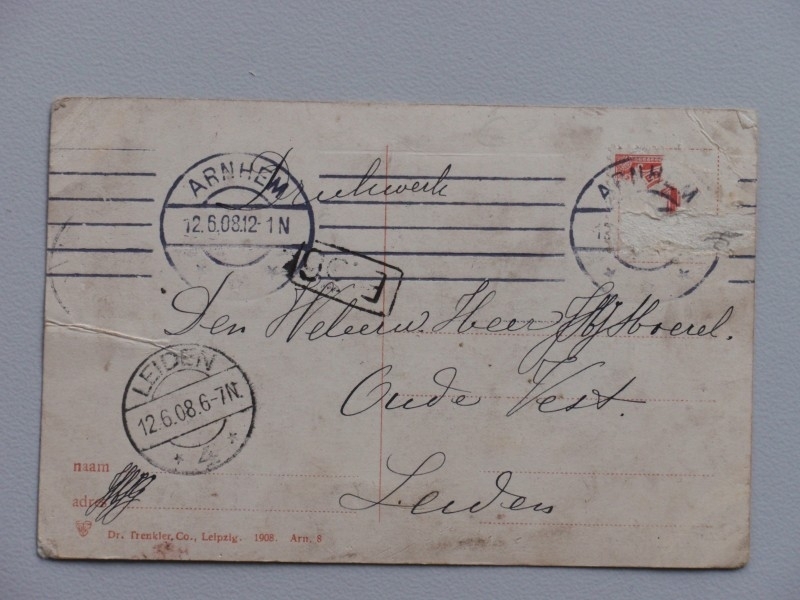 Drukwerk
ARNHEM
12.6.08.12-1N
ARNHEM
Den Weleerw. Heer
Oude Vest.
Leiden
LEIDEN
12.6.08.6-7N.
* 4 *
naam
adres
Dr. Trenkler, Co., Leipzig. 1908. Arn. 8